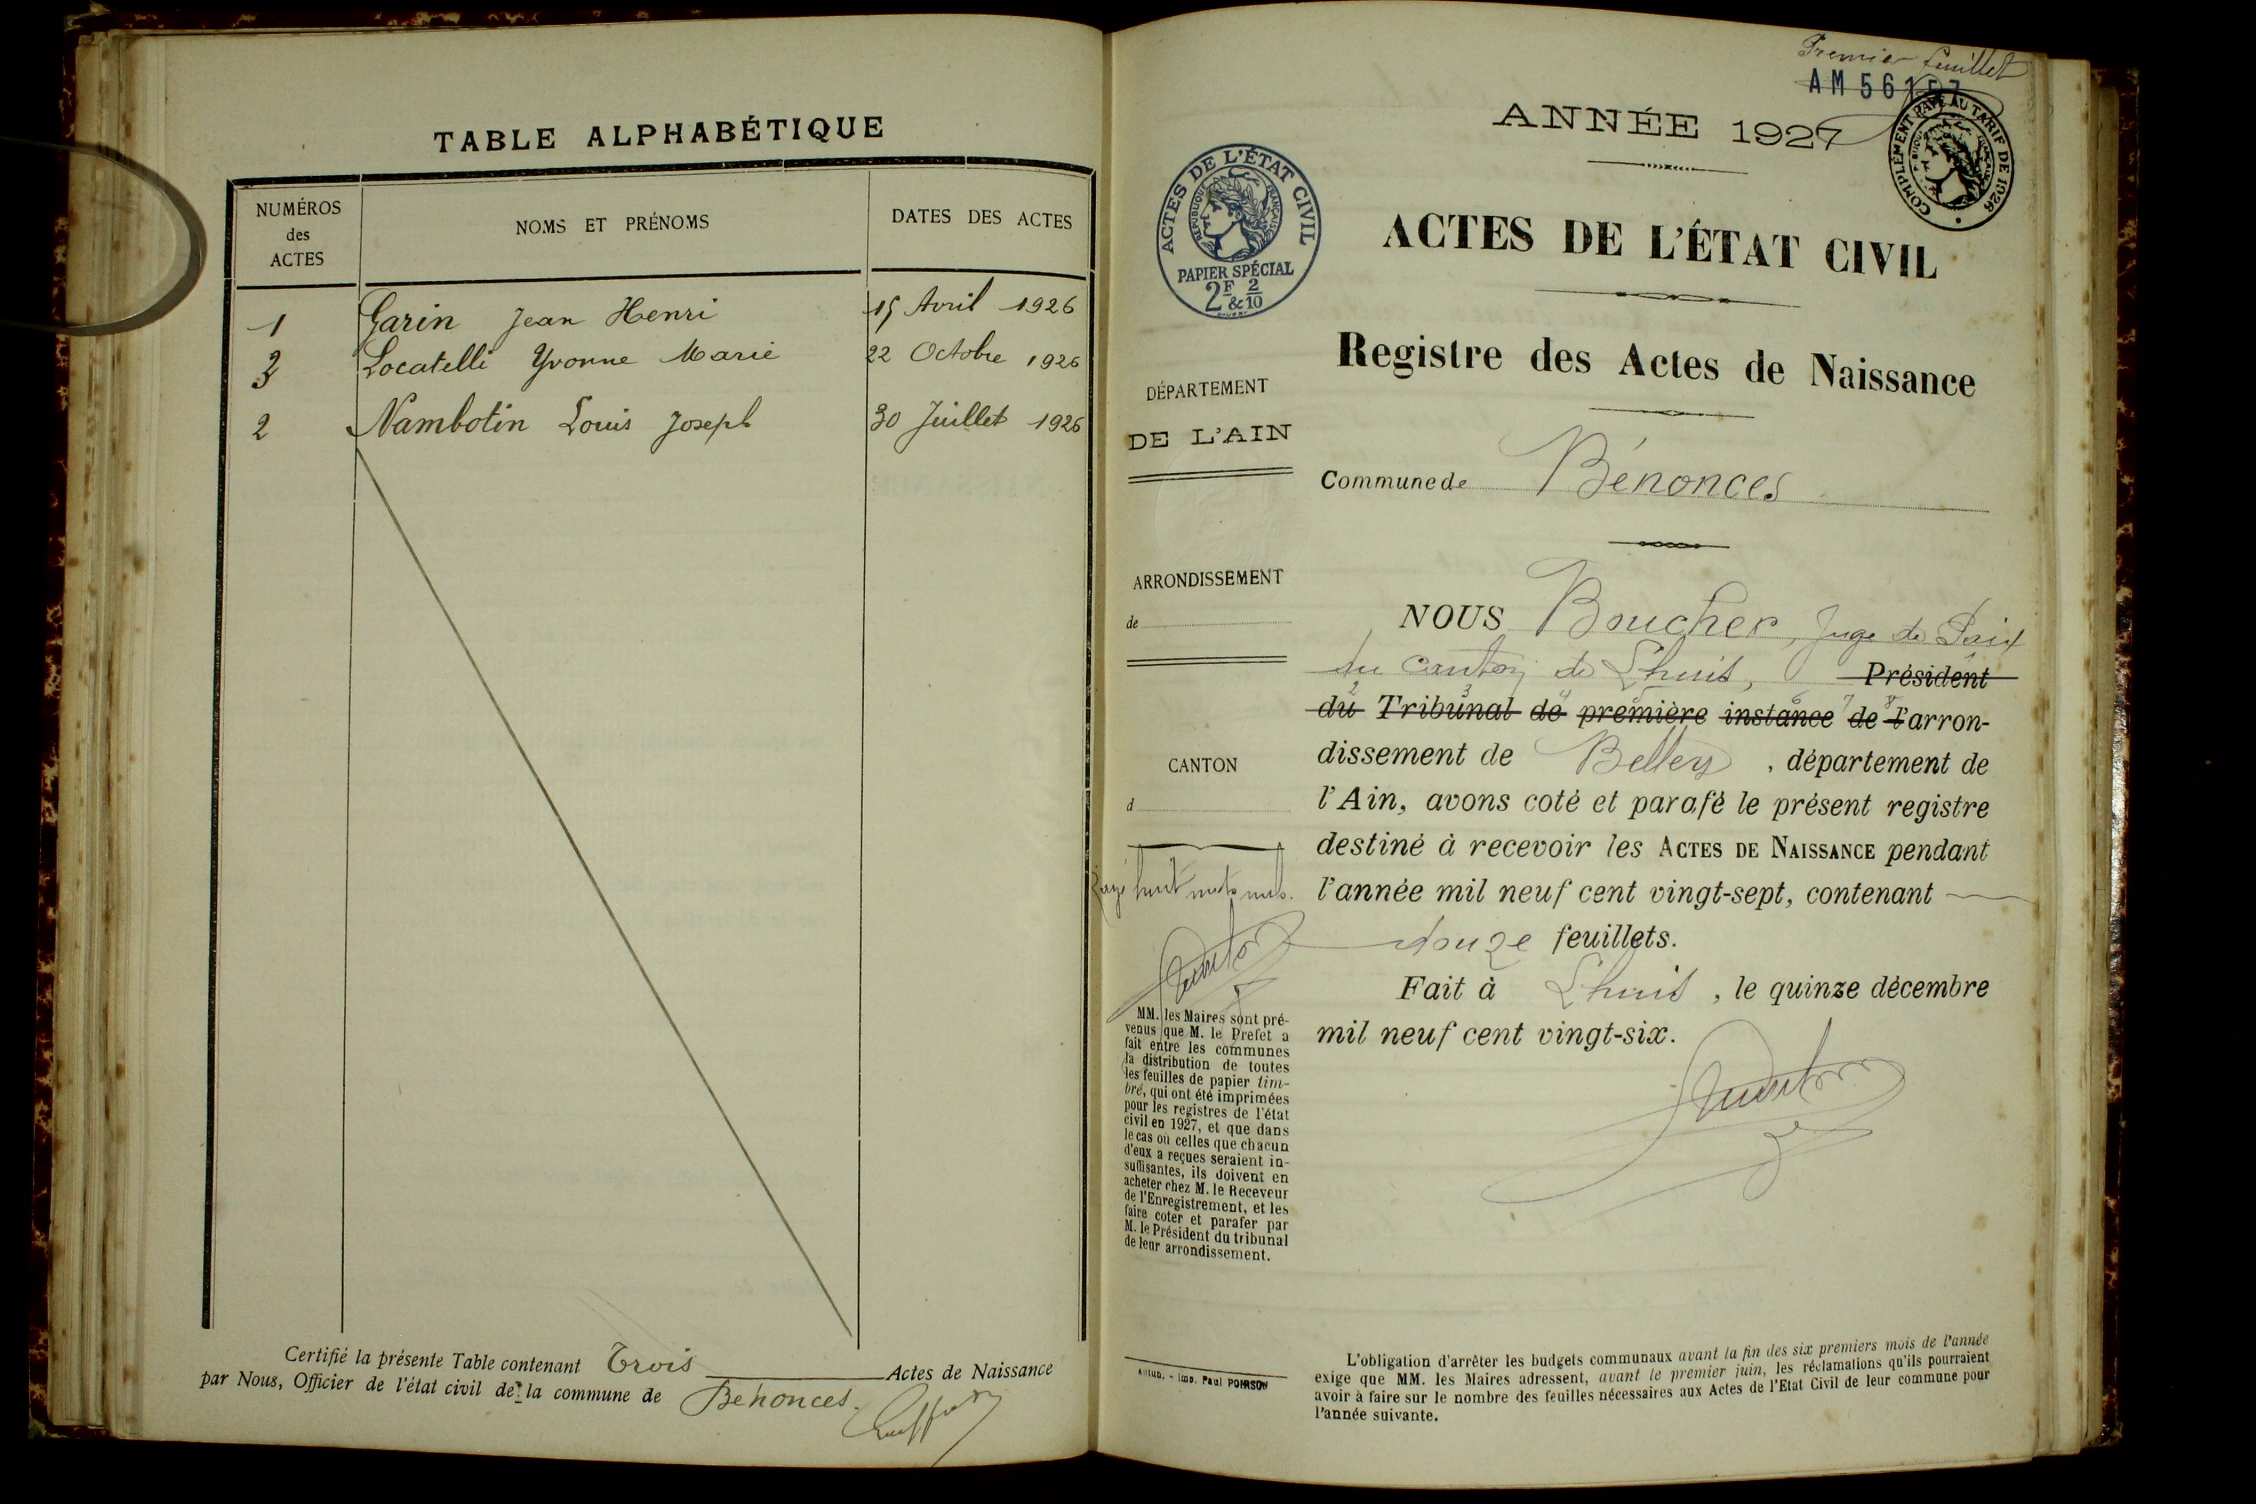 TABLE ALPHABÉTIQUE
NUMÉROS
des
ACTES
NOMS ET PRÉNOMS
DATES DES ACTES
1 Garin Jean Henri 15 Avril 1926
3 Locatelli Yvonne Marie 22 Octobre 1926
2 Nambotin Louis Joseph 30 Juillet 1926
Certifié la présente Table contenant Trois Actes de Naissance
par Nous, Officier de l'état civil de la commune de Bénonces.
Premier feuillet
AM 56157
COMPLÉMENT PAYÉ AU TARIF DE 1926
ANNÉE 1927
ACTES DE L'ÉTAT CIVIL
RÉPUBLIQUE FRANÇAISE
PAPIER SPÉCIAL
2F & 2/10
ACTES DE L'ÉTAT CIVIL
Registre des Actes de Naissance
DÉPARTEMENT
DE L'AIN
Commune de Bénonces
ARRONDISSEMENT
de
CANTON
d
Rayé huit mots nuls.
MM. les Maires sont pré-
venus que M. le Préfet a
fait entre les communes
la distribution de toutes
les feuilles de papier tim-
bré, qui ont été imprimées
pour les registres de l'état
civil en 1927, et que dans
le cas où celles que chacun
d'eux a reçues seraient in-
suffisantes, ils doivent en
acheter chez M. le Receveur
de l'Enregistrement, et les
faire coter et parafer par
M. le Président du tribunal
de leur arrondissement.
NOUS Boucher, Juge de Paix
du canton de Lhuis, Président
du Tribunal de première instance de l'arron-
dissement de Belley, département de
l'Ain, avons coté et parafé le présent registre
destiné à recevoir les ACTES DE NAISSANCE pendant
l'année mil neuf cent vingt-sept, contenant
douze feuillets.
Fait à Lhuis, le quinze décembre
mil neuf cent vingt-six.
Imp. Paul POIRSON
L'obligation d'arrêter les budgets communaux avant la fin des six premiers mois de l'année
exige que MM. les Maires adressent, avant le premier juin, les réclamations qu'ils pourraient
avoir à faire sur le nombre des feuilles nécessaires aux Actes de l'Etat Civil de leur commune pour
l'année suivante.